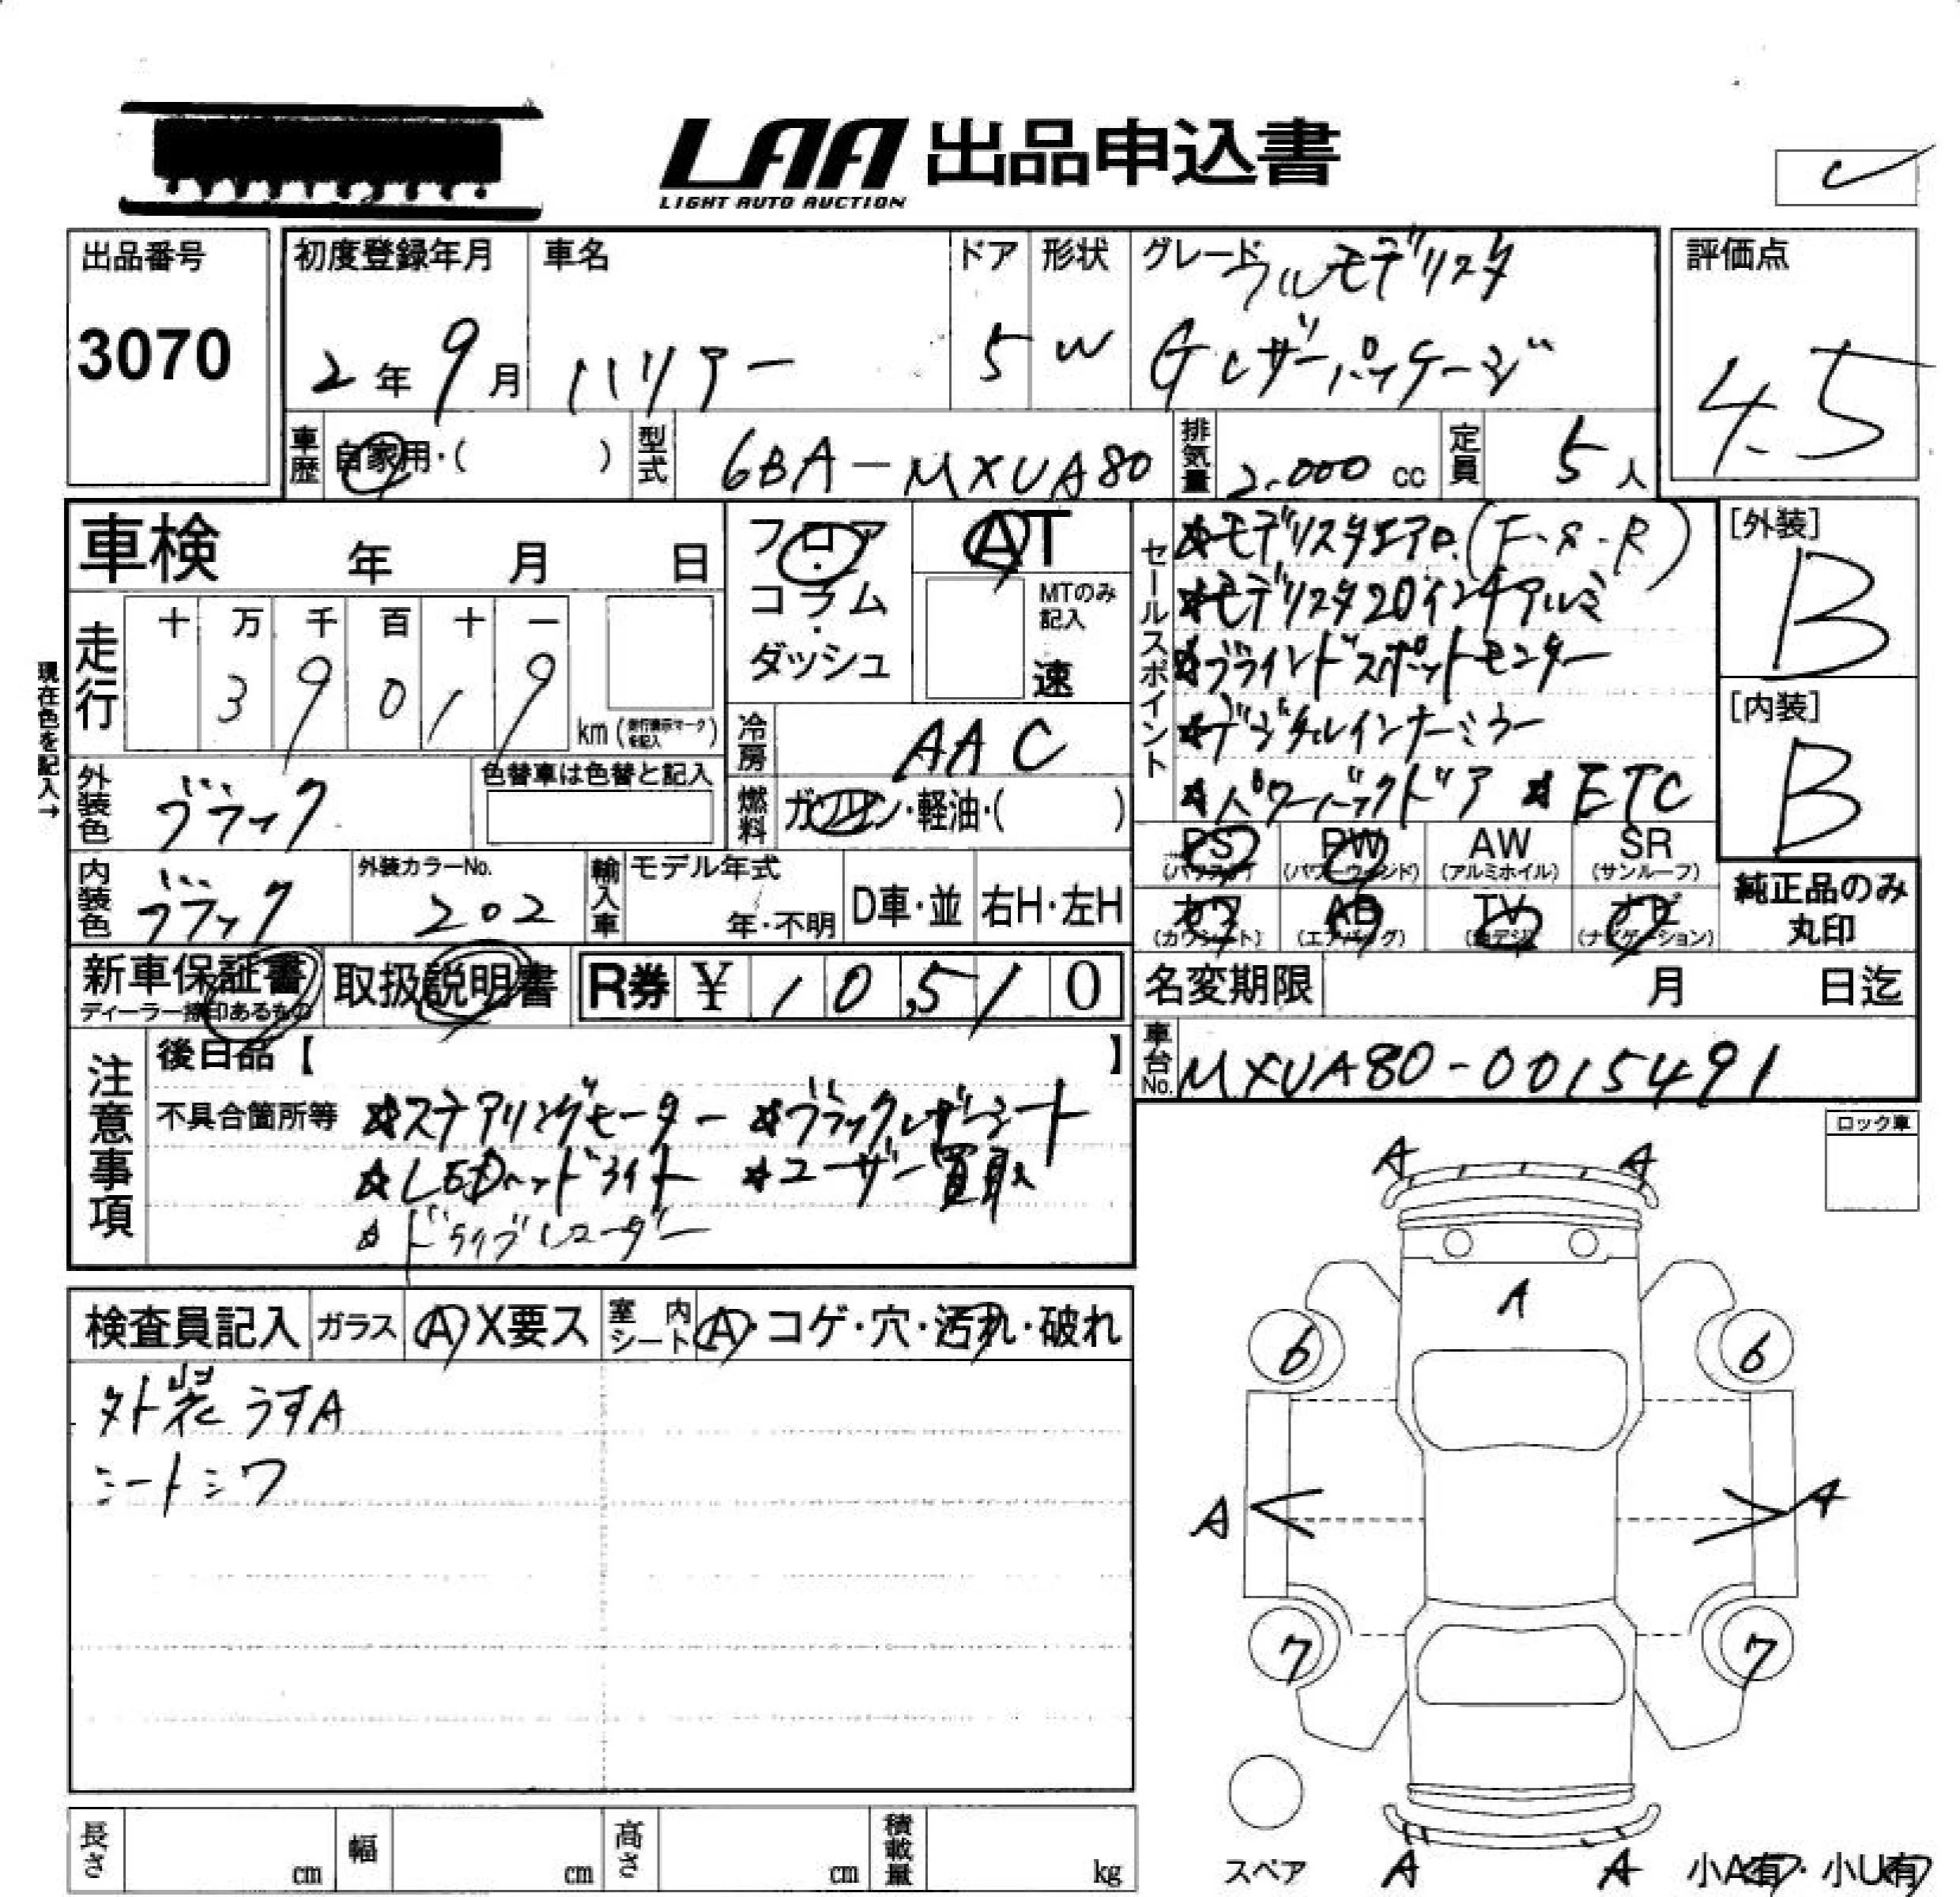 LAA 出品申込書
LIGHT AUTO AUCTION
出品番号
3070
初度登録年月
2年9月
車名
ハリアー
ドア
5
形状
W
グレード
フルモデリスタ
Gレザーパッケージ
評価点
4.5
車歴
自家用・( )
型式
6BA-MXUA80
排気量
2.000 cc
定員
5人
車検 年 月 日
フロア・コラム・ダッシュ
AT
MTのみ記入
速
セールスポイント
☆モデリスタエアロ(F.S.R)
☆モデリスタ20インチアルミ
☆ブラインドスポットモニター
☆デジタルインナーミラー
☆パワーバックドア ☆ETC
[外装]
B
[内装]
B
現在色を記入→
走行
十 万 千 百 十 一
3 9 0 1 9
km (走行表示マークを記入)
冷房
AAC
燃料
ガソリン・軽油・( )
外装色
ブラック
色替車は色替と記入
内装色
ブラック
外装カラーNo.
202
輸入車
モデル年式
年・不明
D車・並
右H・左H
PS (パワステ)
PW (パワーウィンド)
AW (アルミホイル)
SR (サンルーフ)
カワ (カワシート)
AB (エアバッグ)
TV (地デジ)
ナビ (ナビゲーション)
純正品のみ
丸印
新車保証書
ディーラー捺印あるもの
取扱説明書
R券 ¥ 10,510
名変期限 月 日迄
車台No.
MXUA80-0015491
注意事項
後日品【 】
不具合箇所等
☆ステアリングモーター ☆ブラックレザーシート
☆LEDヘッドライト ☆ユーザー買取
☆ドライブレコーダー
ロック車
検査員記入
ガラス
A X要ス
室内シート
A・コゲ・穴・汚れ・破れ
外装うすA
シートシワ
A A
A
6 6
A A
7 7
A A
スペア
小A有・小U有
長さ cm
幅 cm
高さ cm
積載量 kg